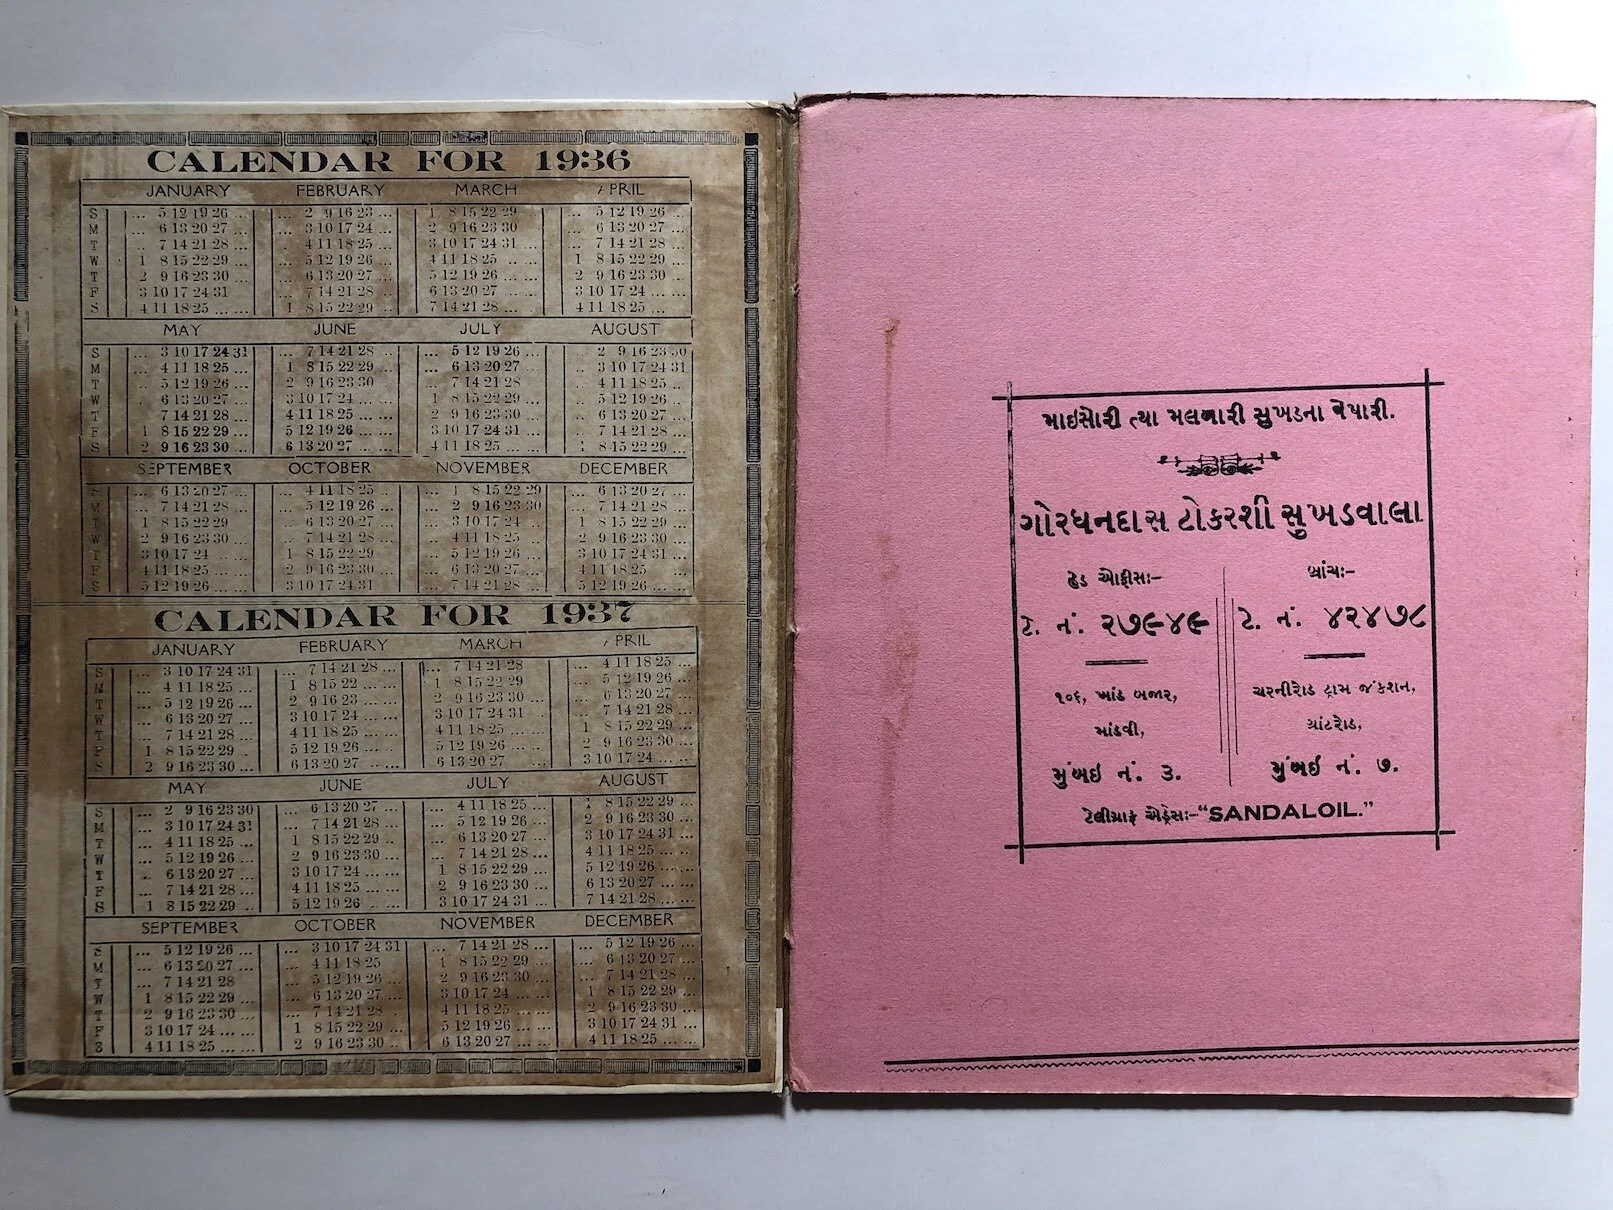 CALENDAR FOR 1936
JANUARY FEBRUARY MARCH PRIL
S ... 5 12 19 26 ... ... 2 9 16 23 ... 1 8 15 22 29 ... 5 12 19 26 ...
M ... 6 13 20 27 ... ... 3 10 17 24 ... 2 9 16 23 30 ... 6 13 20 27 ...
T ... 7 14 21 28 ... ... 4 11 18 25 ... 3 10 17 24 31 ... ... 7 14 21 28 ...
W 1 8 15 22 29 ... ... 5 12 19 26 ... 4 11 18 25 ... ... 1 8 15 22 29 ...
T 2 9 16 23 30 ... ... 6 13 20 27 ... 5 12 19 26 ... ... 2 9 16 23 30 ...
F 3 10 17 24 31 ... 7 14 21 28 ... 6 13 20 27 ... ... 3 10 17 24 ... ...
S 4 11 18 25 ... ... 1 8 15 22 29 ... 7 14 21 28 ... ... 4 11 18 25 ... ...
MAY JUNE JULY AUGUST
S ... 3 10 17 24 31 ... 7 14 21 28 ... ... 5 12 19 26 ... ... 2 9 16 23 30
M ... 4 11 18 25 ... 1 8 15 22 29 ... ... 6 13 20 27 ... 3 10 17 24 31
T ... 5 12 19 26 ... 2 9 16 23 30 ... 7 14 21 28 ... 4 11 18 25 ...
W ... 6 13 20 27 ... 3 10 17 24 ... ... 1 8 15 22 29 ... ... 5 12 19 26 ...
T ... 7 14 21 28 ... 4 11 18 25 ... ... 2 9 16 23 30 ... ... 6 13 20 27 ...
F 1 8 15 22 29 ... 5 12 19 26 ... ... 3 10 17 24 31 ... ... 7 14 21 28 ...
S 2 9 16 23 30 ... 6 13 20 27 ... ... 4 11 18 25 ... 1 8 15 22 29 ...
SEPTEMBER OCTOBER NOVEMBER DECEMBER
S ... 6 13 20 27 ... ... 4 11 18 25 ... ... 1 8 15 22 29 ... 6 13 20 27 ...
M ... 7 14 21 28 ... ... 5 12 19 26 ... ... 2 9 16 23 30 ... 7 14 21 28 ...
T 1 8 15 22 29 ... ... 6 13 20 27 ... ... 3 10 17 24 ... 1 8 15 22 29 ...
W 2 9 16 23 30 ... ... 7 14 21 28 ... ... 4 11 18 25 ... 2 9 16 23 30 ...
T 3 10 17 24 ... ... 1 8 15 22 29 ... ... 5 12 19 26 ... 3 10 17 24 31 ...
F 4 11 18 25 ... ... 2 9 16 23 30 ... ... 6 13 20 27 ... 4 11 18 25 ...
S 5 12 19 26 ... ... 3 10 17 24 31 ... 7 14 21 28 ... 5 12 19 26 ... ...
CALENDAR FOR 1937
JANUARY FEBRUARY MARCH PRIL
S ... 3 10 17 24 31 ... 7 14 21 28 ... ... 7 14 21 28 ... 4 11 18 25 ...
M ... 4 11 18 25 ... 1 8 15 22 ... ... 1 8 15 22 29 ... 5 12 19 26 ...
T ... 5 12 19 26 ... 2 9 16 23 ... ... 2 9 16 23 30 ... ... 6 13 20 27 ...
W ... 6 13 20 27 ... 3 10 17 24 ... ... 3 10 17 24 31 ... 7 14 21 28 ...
T ... 7 14 21 28 ... 4 11 18 25 ... ... 4 11 18 25 ... ... 1 8 15 22 29 ...
F 1 8 15 22 29 ... 5 12 19 26 ... ... 5 12 19 26 ... ... 2 9 16 23 30 ...
S 2 9 16 23 30 ... 6 13 20 27 ... ... 6 13 20 27 ... ... 3 10 17 24 ... ...
MAY JUNE JULY AUGUST
S ... 2 9 16 23 30 ... 6 13 20 27 ... ... 4 11 18 25 ... 1 8 15 22 29 ...
M ... 3 10 17 24 31 ... 7 14 21 28 ... ... 5 12 19 26 ... 2 9 16 23 30 ...
T ... 4 11 18 25 ... 1 8 15 22 29 ... ... 6 13 20 27 ... 3 10 17 24 31 ...
W ... 5 12 19 26 ... 2 9 16 23 30 ... ... 7 14 21 28 ... 4 11 18 25 ... ...
T ... 6 13 20 27 ... 3 10 17 24 ... ... 1 8 15 22 29 ... 5 12 19 26 ... ...
F ... 7 14 21 28 ... 4 11 18 25 ... ... 2 9 16 23 30 ... 6 13 20 27 ... ...
S 1 8 15 22 29 ... 5 12 19 26 ... ... 3 10 17 24 31 ... 7 14 21 28 ... ...
SEPTEMBER OCTOBER NOVEMBER DECEMBER
S ... 5 12 19 26 ... ... 3 10 17 24 31 ... 7 14 21 28 ... ... 5 12 19 26 ...
M ... 6 13 20 27 ... ... 4 11 18 25 1 8 15 22 29 ... ... 6 13 20 27 ...
T ... 7 14 21 28 ... 5 12 19 26 ... 2 9 16 23 30 ... ... 7 14 21 28 ...
W 1 8 15 22 29 ... ... 6 13 20 27 ... 3 10 17 24 ... ... 1 8 15 22 29 ...
T 2 9 16 23 30 ... ... 7 14 21 28 ... 4 11 18 25 ... ... 2 9 16 23 30 ...
F 3 10 17 24 ... ... 1 8 15 22 29 ... 5 12 19 26 ... ... 3 10 17 24 31 ...
S 4 11 18 25 ... ... 2 9 16 23 30 ... 6 13 20 27 ... ... 4 11 18 25 ... ...
માઇસોરી ત્યા મલબારી સુખડના વેપારી.
ગોરધનદાસ ટોકરશી સુખડવાલા
હેડ ઓફીસઃ-
ટે. નં. ૨૭૯૪૯
૧૦૬, ખાંડ બજાર,
માંડવી,
મુંબઇ નં. ૩.
બ્રાંચઃ-
ટે. નં. ૪૨૪૭૮
ચરનીરોડ ટ્રામ જંકશન,
ગ્રાંટરોડ,
મુંબઇ નં. ૭.
ટેલીગ્રાફ એડ્રેસઃ-"SANDALOIL."